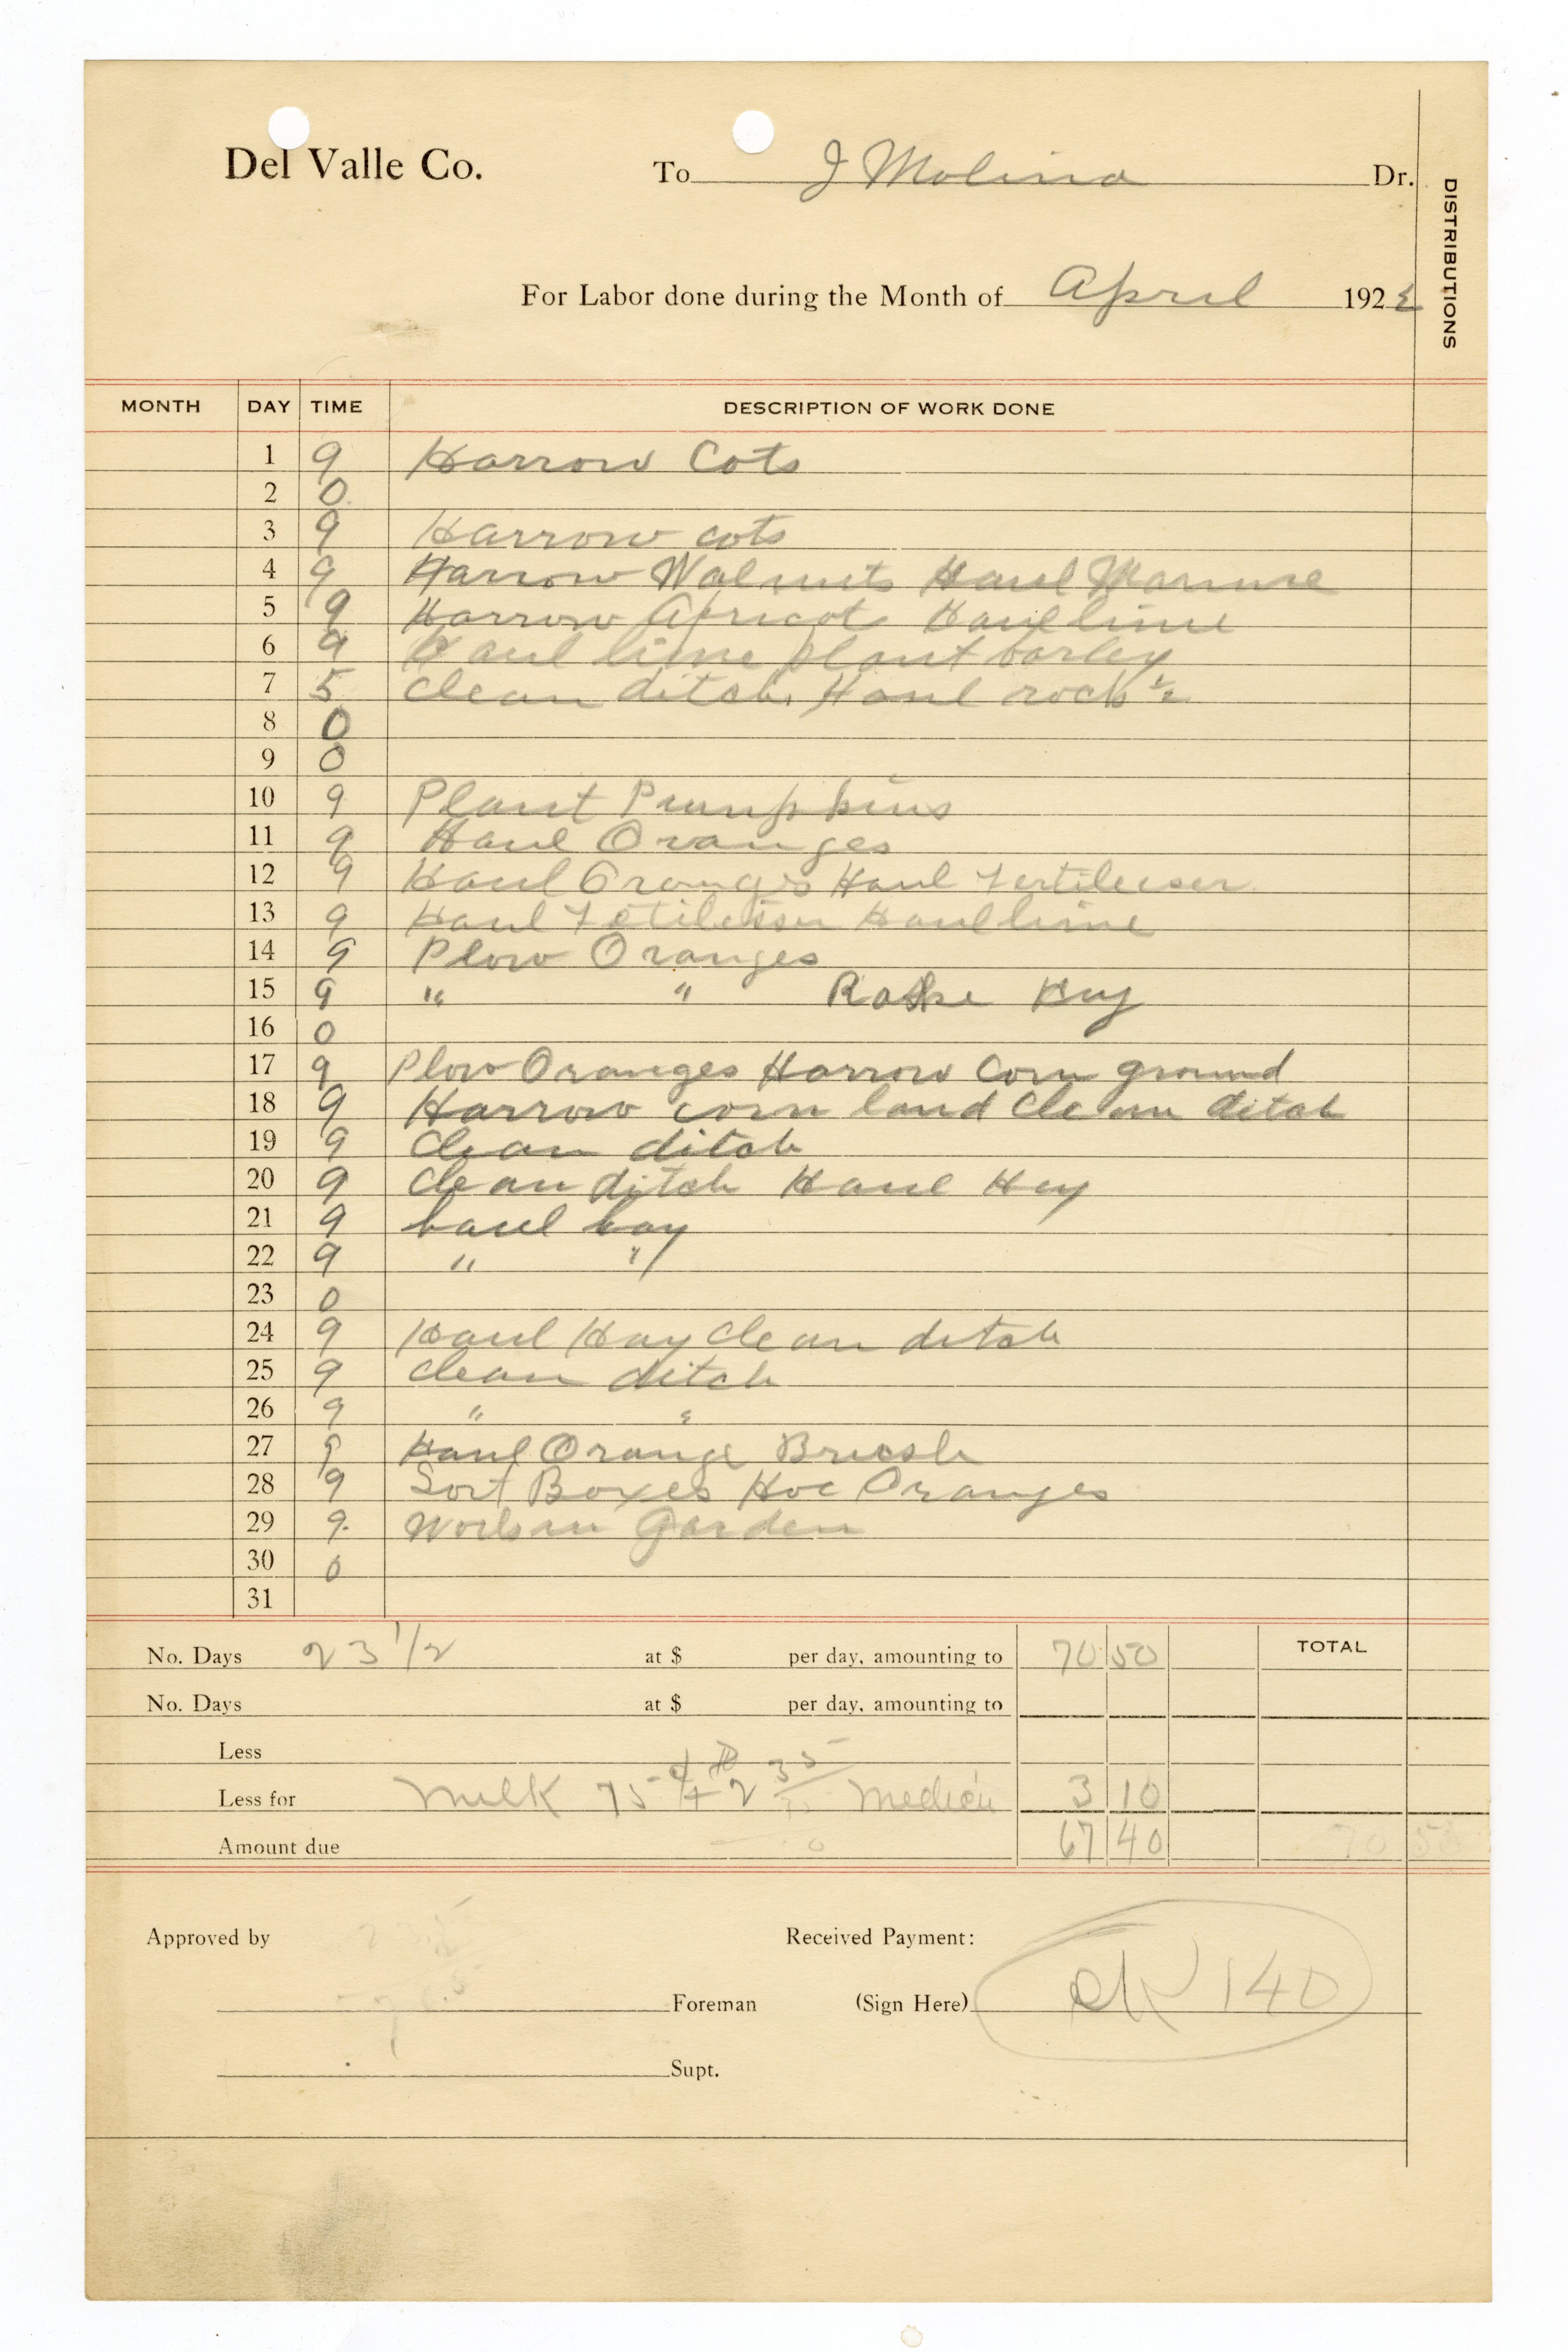 Del Valle Co. To J Molina Dr.
DISTRIBUTIONS
For Labor done during the Month of April 1922
MONTH DAY TIME DESCRIPTION OF WORK DONE
1 9 Harrow Cots
2 0
3 9 Harrow cots
4 9 Harrow Walnuts Haul Manure
5 9 Harrow Apricots Haul lime
6 9 Haul lime plant barley
7 5 Clean ditch. Haul rock ½
8 0
9 0
10 9 Plant Pumpkins
11 9 Haul Oranges
12 9 Haul Oranges Haul Fertileiser
13 9 Haul Fetileiser Haul lime
14 9 Plow Oranges
15 9 " " Rake Hay
16 0
17 9 Plow Oranges Harrow Corn ground
18 9 Harrow corn land Clean ditch
19 9 Clean ditch
20 9 Clean ditch Haul Hay
21 9 haul hay
22 9 " "
23 0
24 9 Haul Hay Clean ditch
25 9 Clean ditch
26 9 " "
27 9 Haul Orange Brush
28 9 Sort Boxes Hoe Oranges
29 9 Work in Garden
30 0
31
No. Days 23 1/2 at $ per day, amounting to 70 50 TOTAL
No. Days at $ per day, amounting to
Less
Less for Milk 75 2 35 Medicin 3 10
Amount due 67 40 70 50
Approved by Received Payment:
Foreman (Sign Here) ck 140
Supt.